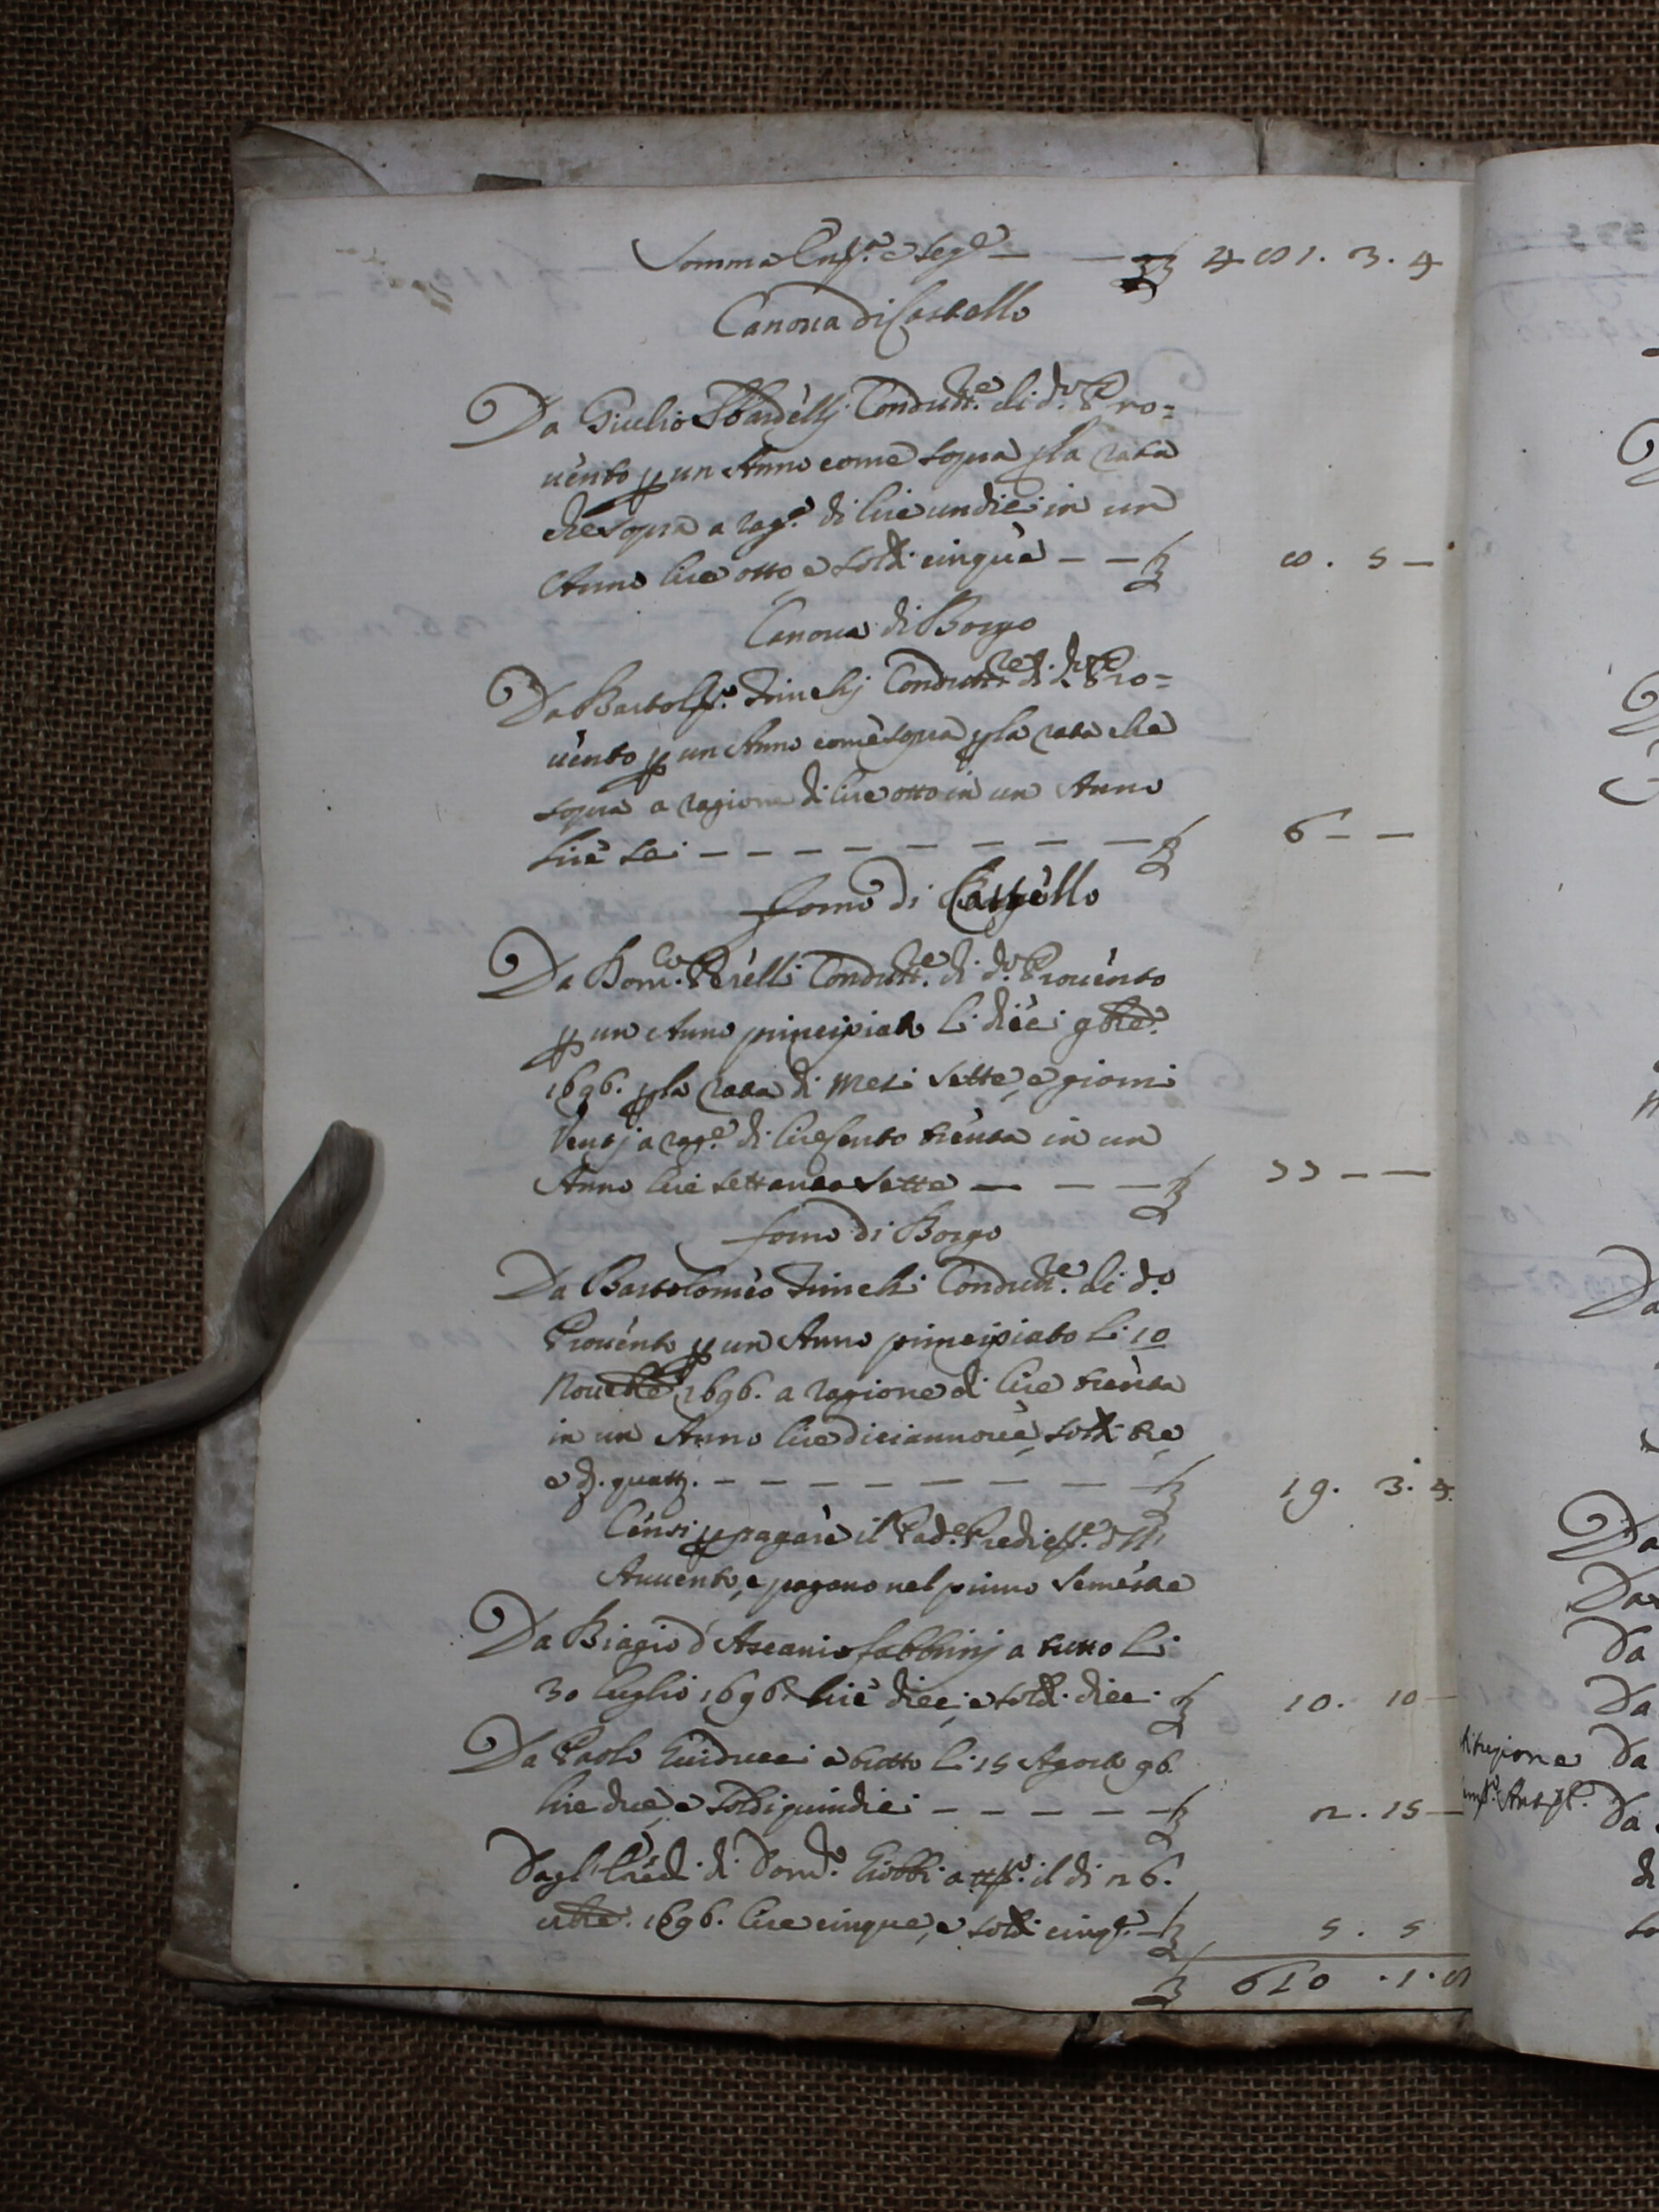 Somma Cont.ª e seg.e — — ₤ 481. 3. 4
Canova di Castello
Da Giulio Sbardelli Condutt.re di d.º Pro=
vento p un Anno come sopra p la rata
che sopra a rag.e di lire undici in un
Anno lire otto e soldi cinque — — ₤ 8. 5 —
Canova di Borgo
Da Bartol.º Trinchi Condutt.re di d.º Pro=
vento p un Anno come sopra p la rata che
sopra a ragione di lire otto in un Anno
lire sei — — — — — — — — ₤ 6 — —
forno di Castello
Da Dom.co Perelli Condutt.re di d.º Provento
p un Anno principiato li dieci 9bre.
1696. p la rata di Mesi sette, e giorni
Venti a rag.e di lire Cento trenta in un
Anno lire settanta sette — — — ₤ 77 — —
forno di Borgo
Da Bartolomeo Trinchi Condutt.re di d.º
Provento p un Anno principiato li 10
Novebre 1696. a ragione di lire trenta
in un Anno lire diciannove, soldi tre,
e d. quatt. — — — — — — — — ₤ 19. 3. 4.
Censi p pagare il Pad.e Predic.re dell'
Avvento, e pagano nel primo Semestre
Da Biagio d'Ascanio fabbrinj a tutto li
30 luglio 1696. lire dieci, e soldi dieci ₤ 10. 10 —
Da Paolo Guiducci a tutto li 15 Agosto 96.
lire due, e soldi quindici — — — — — ₤ 2. 15 —
Dagl'Eredi di Dom.º Giobbi a tt.º il di 26.
1696. lire cinque, e soldi cinq.e — ₤ 5. 5
₤ 610 . 1. 8
Da
Da
Da
Da
Da
Da